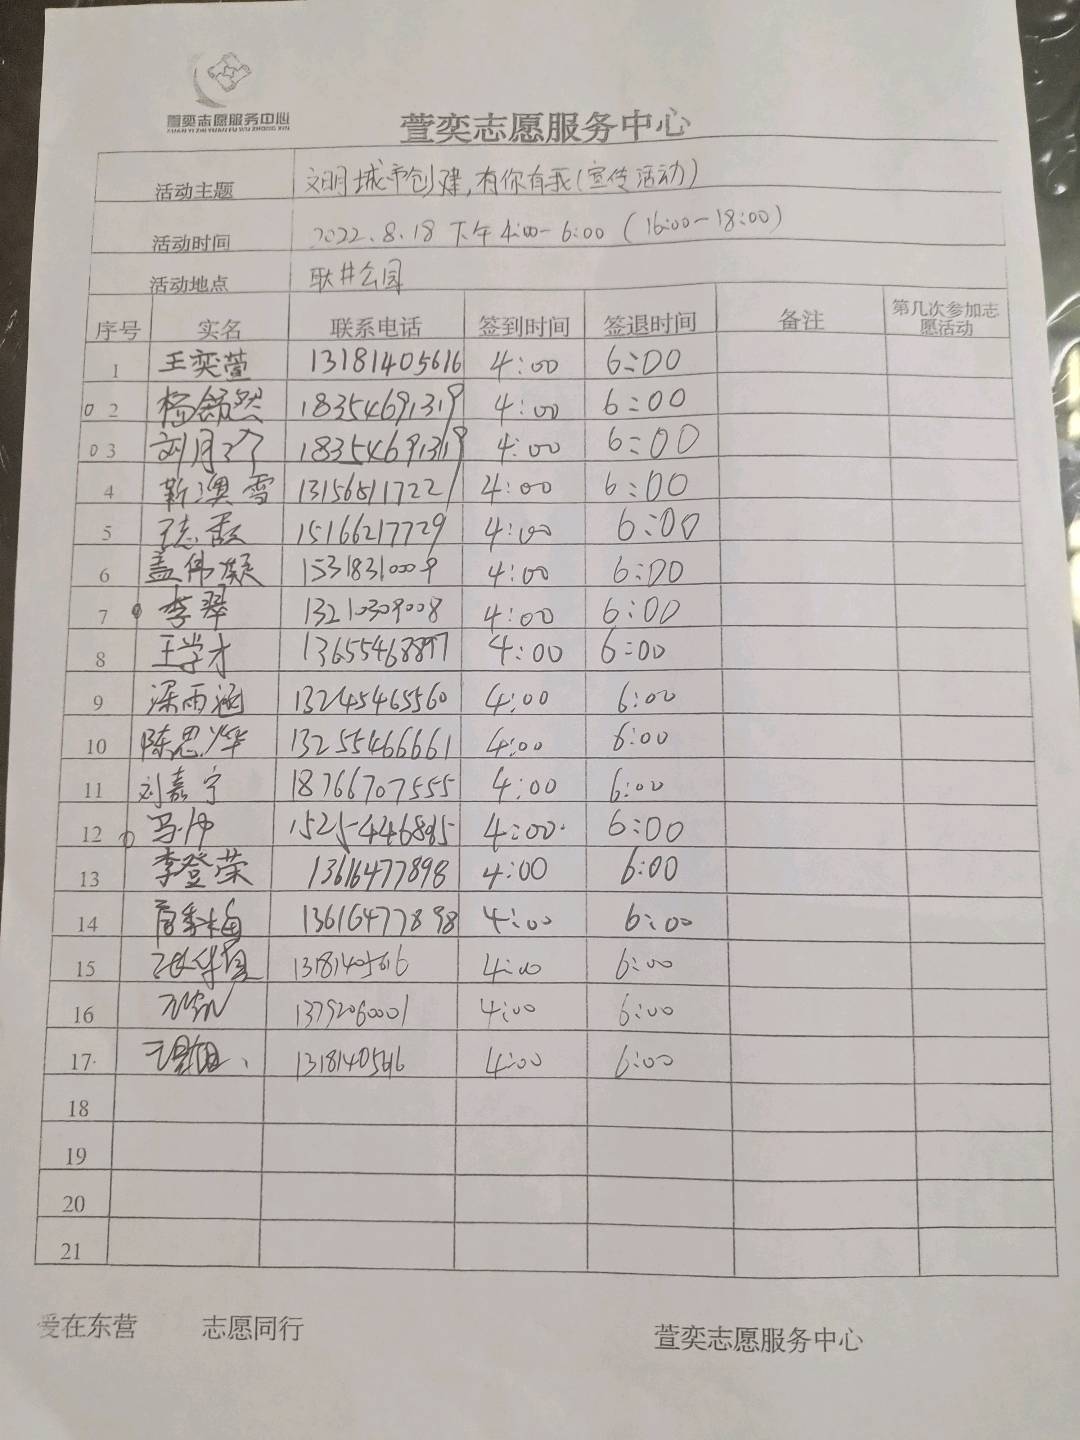 萱奕志愿服务中心
XUAN YI ZHI YUAN FU WU ZHONG XIN
萱奕志愿服务中心
活动主题 文明城市创建,有你有我(宣传活动)
活动时间 2022.8.18 下午4:00-6:00 (16:00-18:00)
活动地点 耿井公园
序号 实名 联系电话 签到时间 签退时间 备注 第几次参加志愿活动
1 王奕萱 13181405616 4:00 6:00
0 2 杨舒然 18354691319 4:00 6:00
0 3 刘月 18354691319 4:00 6:00
4 靳澳雪 13156811722 4:00 6:00
5 15166217729 4:00 6:00
6 盖伟凝 15318310009 4:00 6:00
7 李翠 13210309008 4:00 6:00
8 王学才 13655468897 4:00 6:00
9 梁雨涵 13245465560 4:00 6:00
10 陈思烨 13255466661 4:00 6:00
11 刘嘉宁 18766707555 4:00 6:00
12 冯帅 15254446895 4:00 6:00
13 李登荣 13616477898 4:00 6:00
14 13616477898 4:00 6:00
15 13181405616 4:00 6:00
16 13792060001 4:00 6:00
17 13181405616 4:00 6:00
18
19
20
21
爱在东营 志愿同行 萱奕志愿服务中心